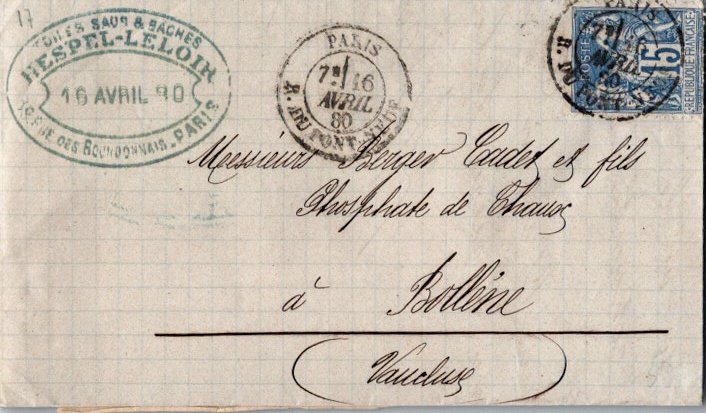 17
TOILES SACS & BACHES
HESPEL-LELOIR
16 AVRIL 80
RUE DES BOURDONNAIS_PARIS
PARIS
7E 16
AVRIL
80
R. DU PONT-NEUF
PARIS
7E 16
AVRIL
80
R. DU PONT-NEUF
POSTES
15
REPUBLIQUE FRANÇAISE
Messieurs Berger Cadet et fils
Phosphate de Chaux
à Bollène
(Vaucluse)